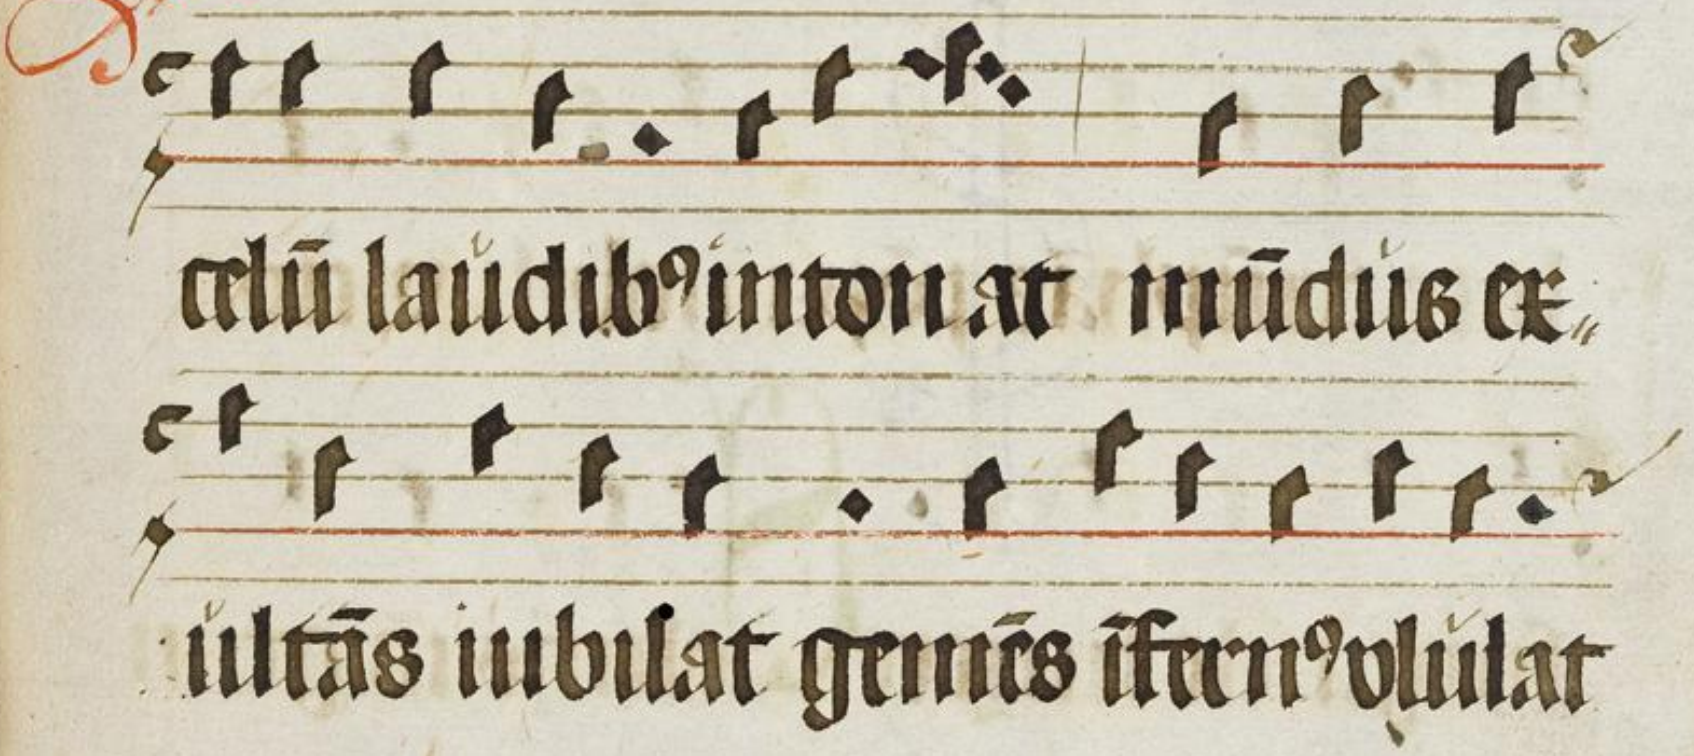 celū laudibꝯ intonat mūdus ex〃
ultās iubilat gemēs īfernꝯ ululat